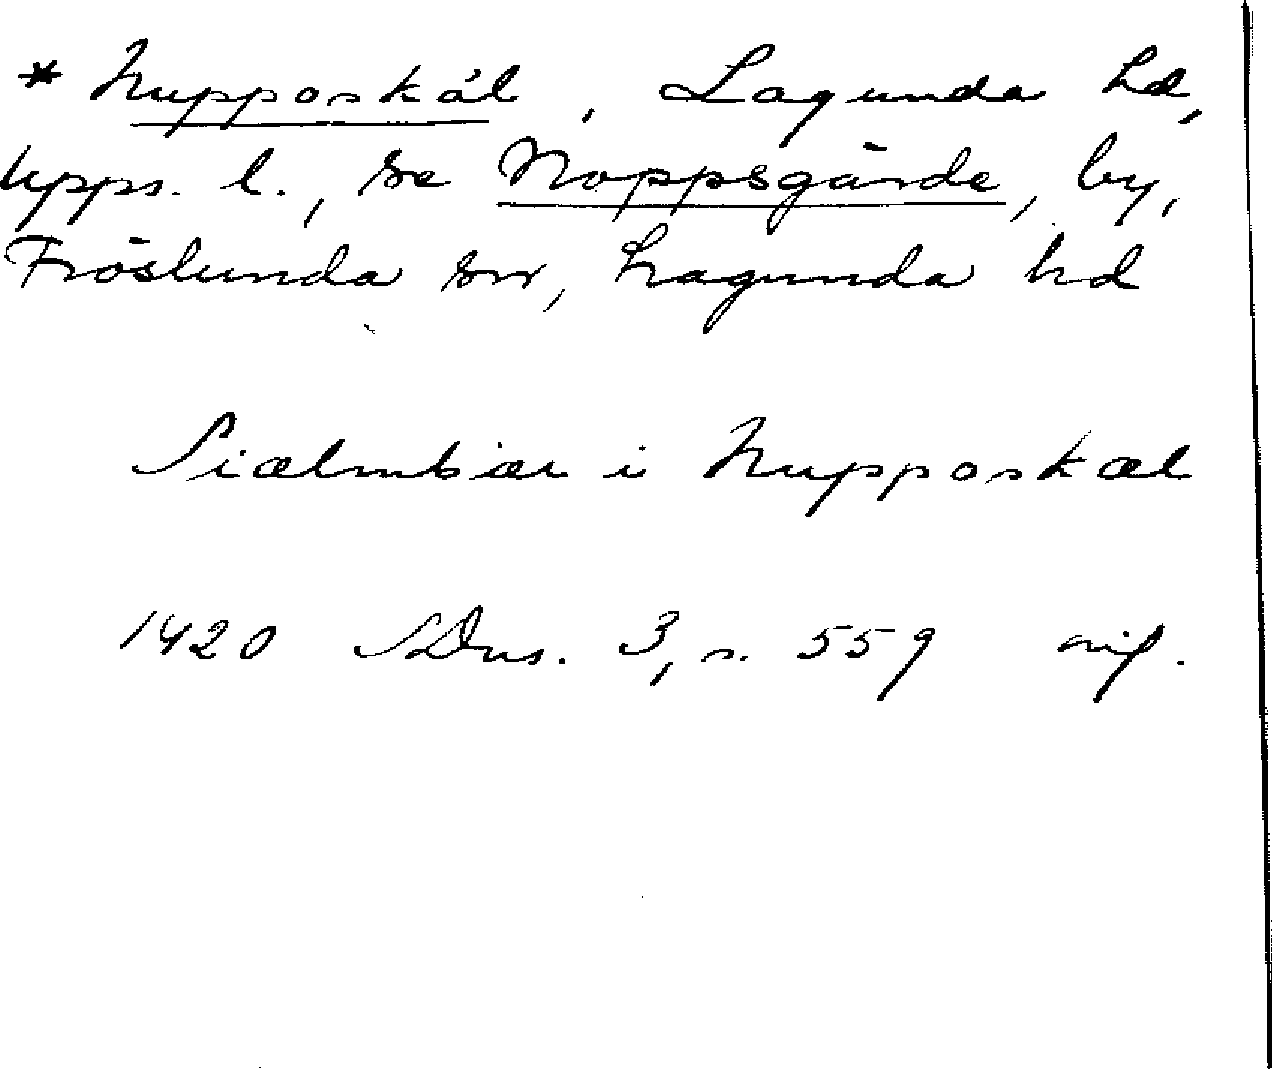 * Nupposkál, Lagunda hd,
Upps. l., se Noppsgärde, by,
Fröslunda sn, Lagunda hd
Siælmbær i Nupposkæl
1420 SDns. 3, s. 559 avf.